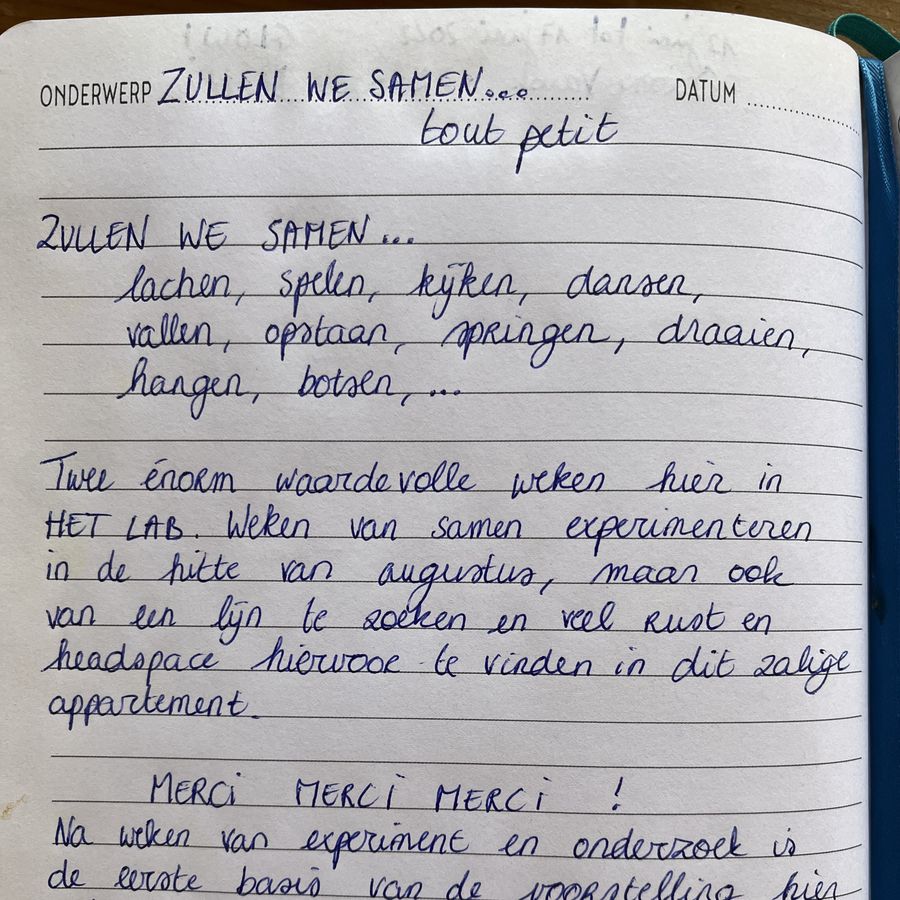 ONDERWERP ZULLEN WE SAMEN... DATUM
tout petit
ZULLEN WE SAMEN...
lachen, spelen, kijken, dansen,
vallen, opstaan, springen, draaien,
hangen, botsen, ...
Twee énorm waardevolle weken hier in
HET LAB. Weken van samen experimenteren
in de hitte van augustus, maar ook
van een lijn te zoeken en veel rust en
headspace hiervoor te vinden in dit zalige
appartement.
MERCI MERCI MERCI !
Na weken van experiment en onderzoek is
de eerste basis van de voorstelling hier